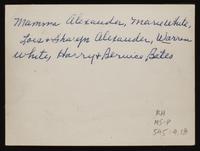 Mamma Alexander, Marie White,
Lois & Sharyn Alexander, Warren
White, Harry & Bernice Bates
RH
MS-P
545.9.13